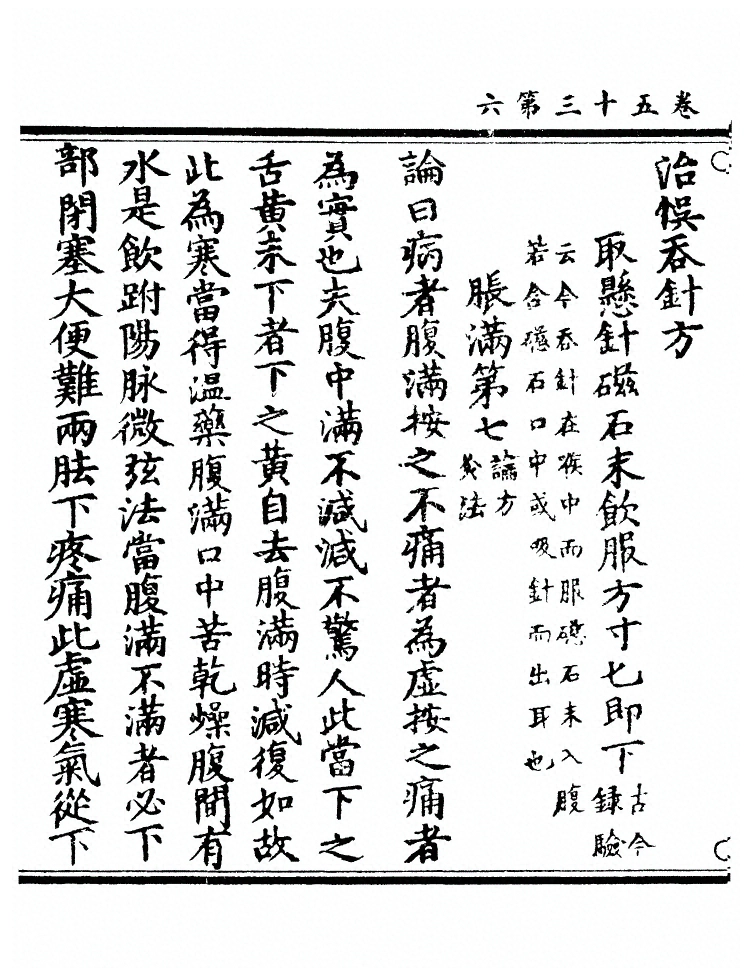 卷五十三第六
治悮吞針方
取懸針磁石末飲服方寸匕即下
古今
錄驗
云今吞針在喉中而服礠石末入腹
若含礠石口中或吸針而出耳也
脹滿第七
論方
灸法
論曰病者腹滿按之不痛者為虛按之痛者
為實也夫腹中滿不減減不驚人此當下之
舌黄未下者下之黄自去腹滿時減復如故
此為寒當得温藥腹滿口中苦乾燥腹間有
水是飲跗陽脉微弦法當腹滿不滿者必下
部閉塞大便難兩胠下疼痛此虛寒氣從下